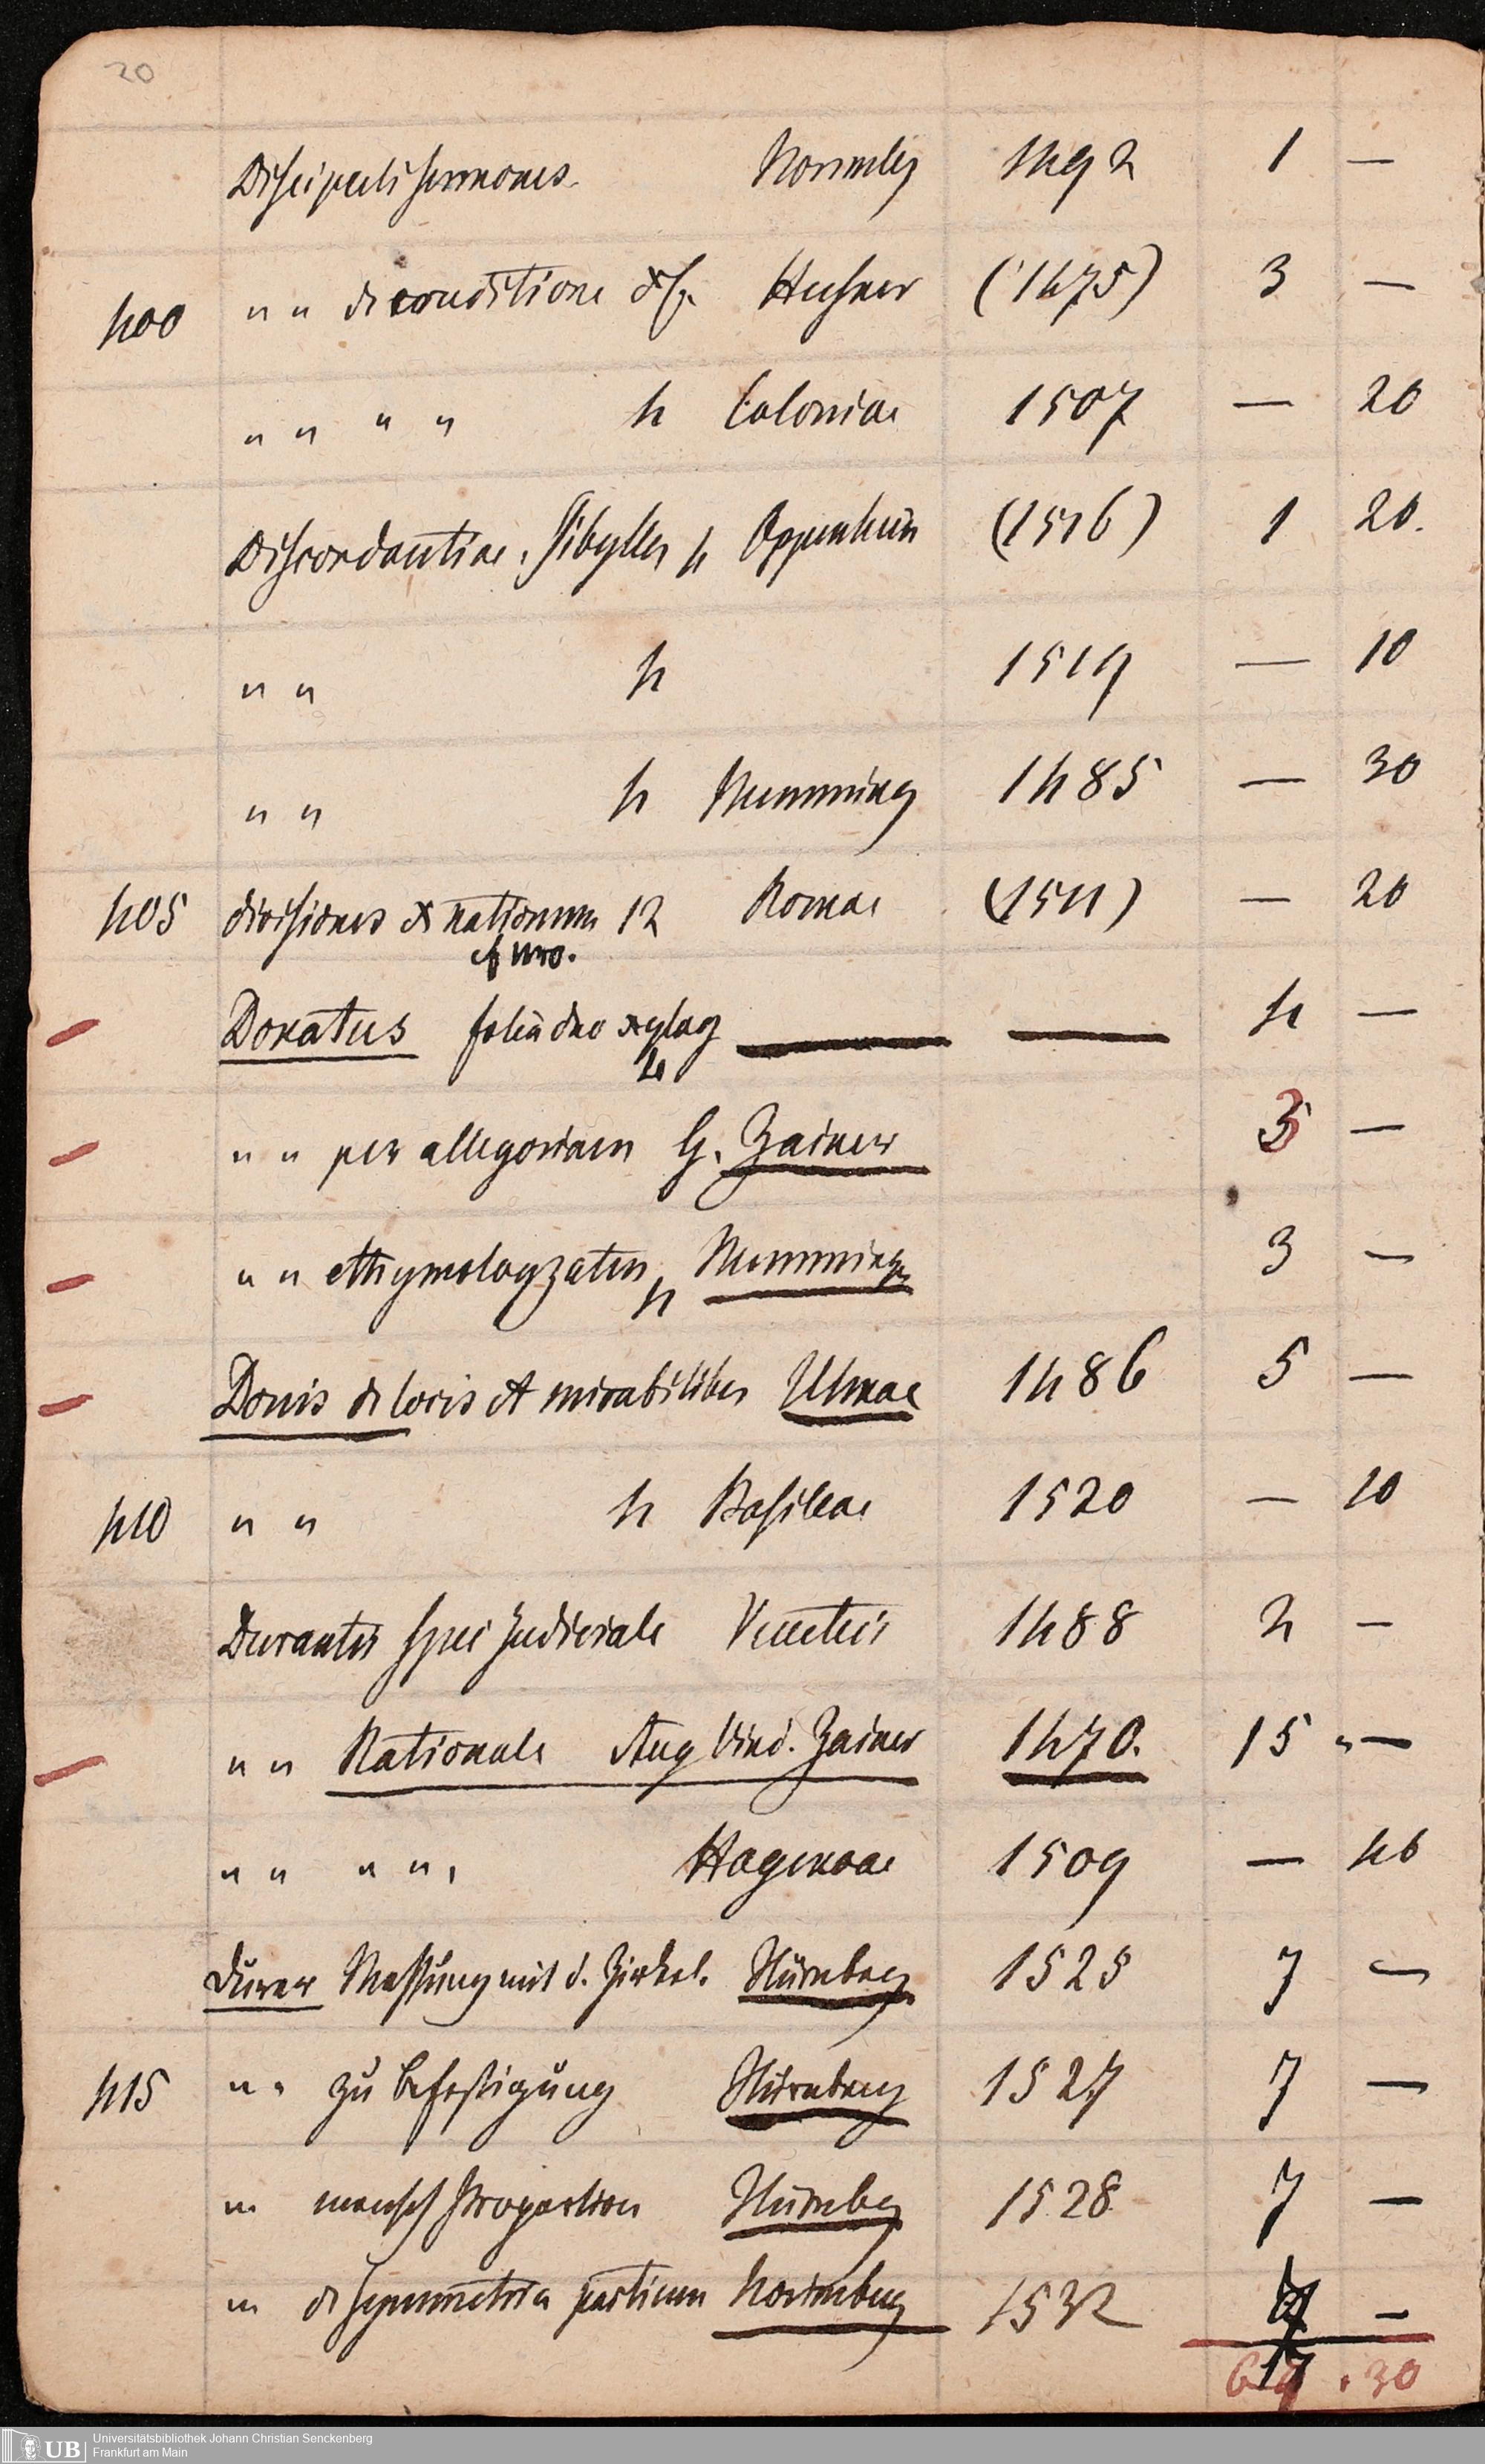 20
Discipuli sermones. Norimbg 1492 1 —
400 " " de eruditione xf. Husner (1475) 3 —
" " " " 4 Coloniae 1507 — 20
Discordantiae. Sibyllen 4 Oppenheim (1516) 1 20.
" " 4 1519 — 10
" " 4 Memming 1485 — 30
405 divisiones x nationum 12 Romae (1511) — 20
Donatus folia duo xylog 4 —
4
" " per allegoriam G. Zainer —
" " ethymologyzatus 4 Memming 3 —
Donis de locis et mirabilibus Ulmae 1486 5 —
410 " " 4 Basileae 1520 — 10
Durantis spec judiciale Venetiis 1488 2 —
" " Rationale Aug Vind. Zainer 1470. 15 " —
" " " " Hagenoae 1509 —
Dürer Messung mit d. Zirkel. Nürnberg 1525 7 —
415 " " zu befestigung Nürnberg 1527 7 —
" mensch Proportion Nürnbg 1528 7 —
" de symmetria partium Norimberg 1532 —
. 30
UB Universitätsbibliothek Johann Christian Senckenberg
Frankfurt am Main